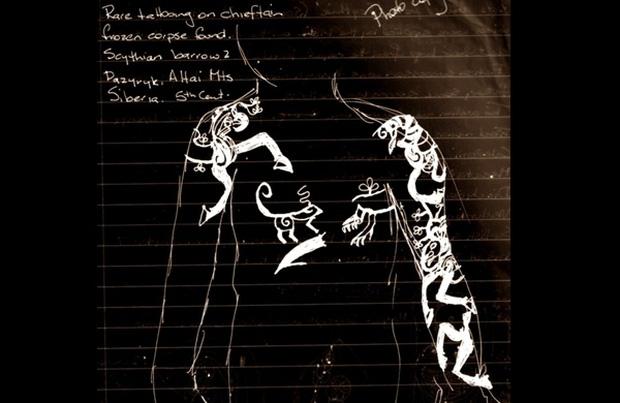 Rare tattooing on chieftain
frozen corpse found.
Scythian barrow 2
Pazyryk, Altai Mts
Siberia. 5th Cent.
Photo